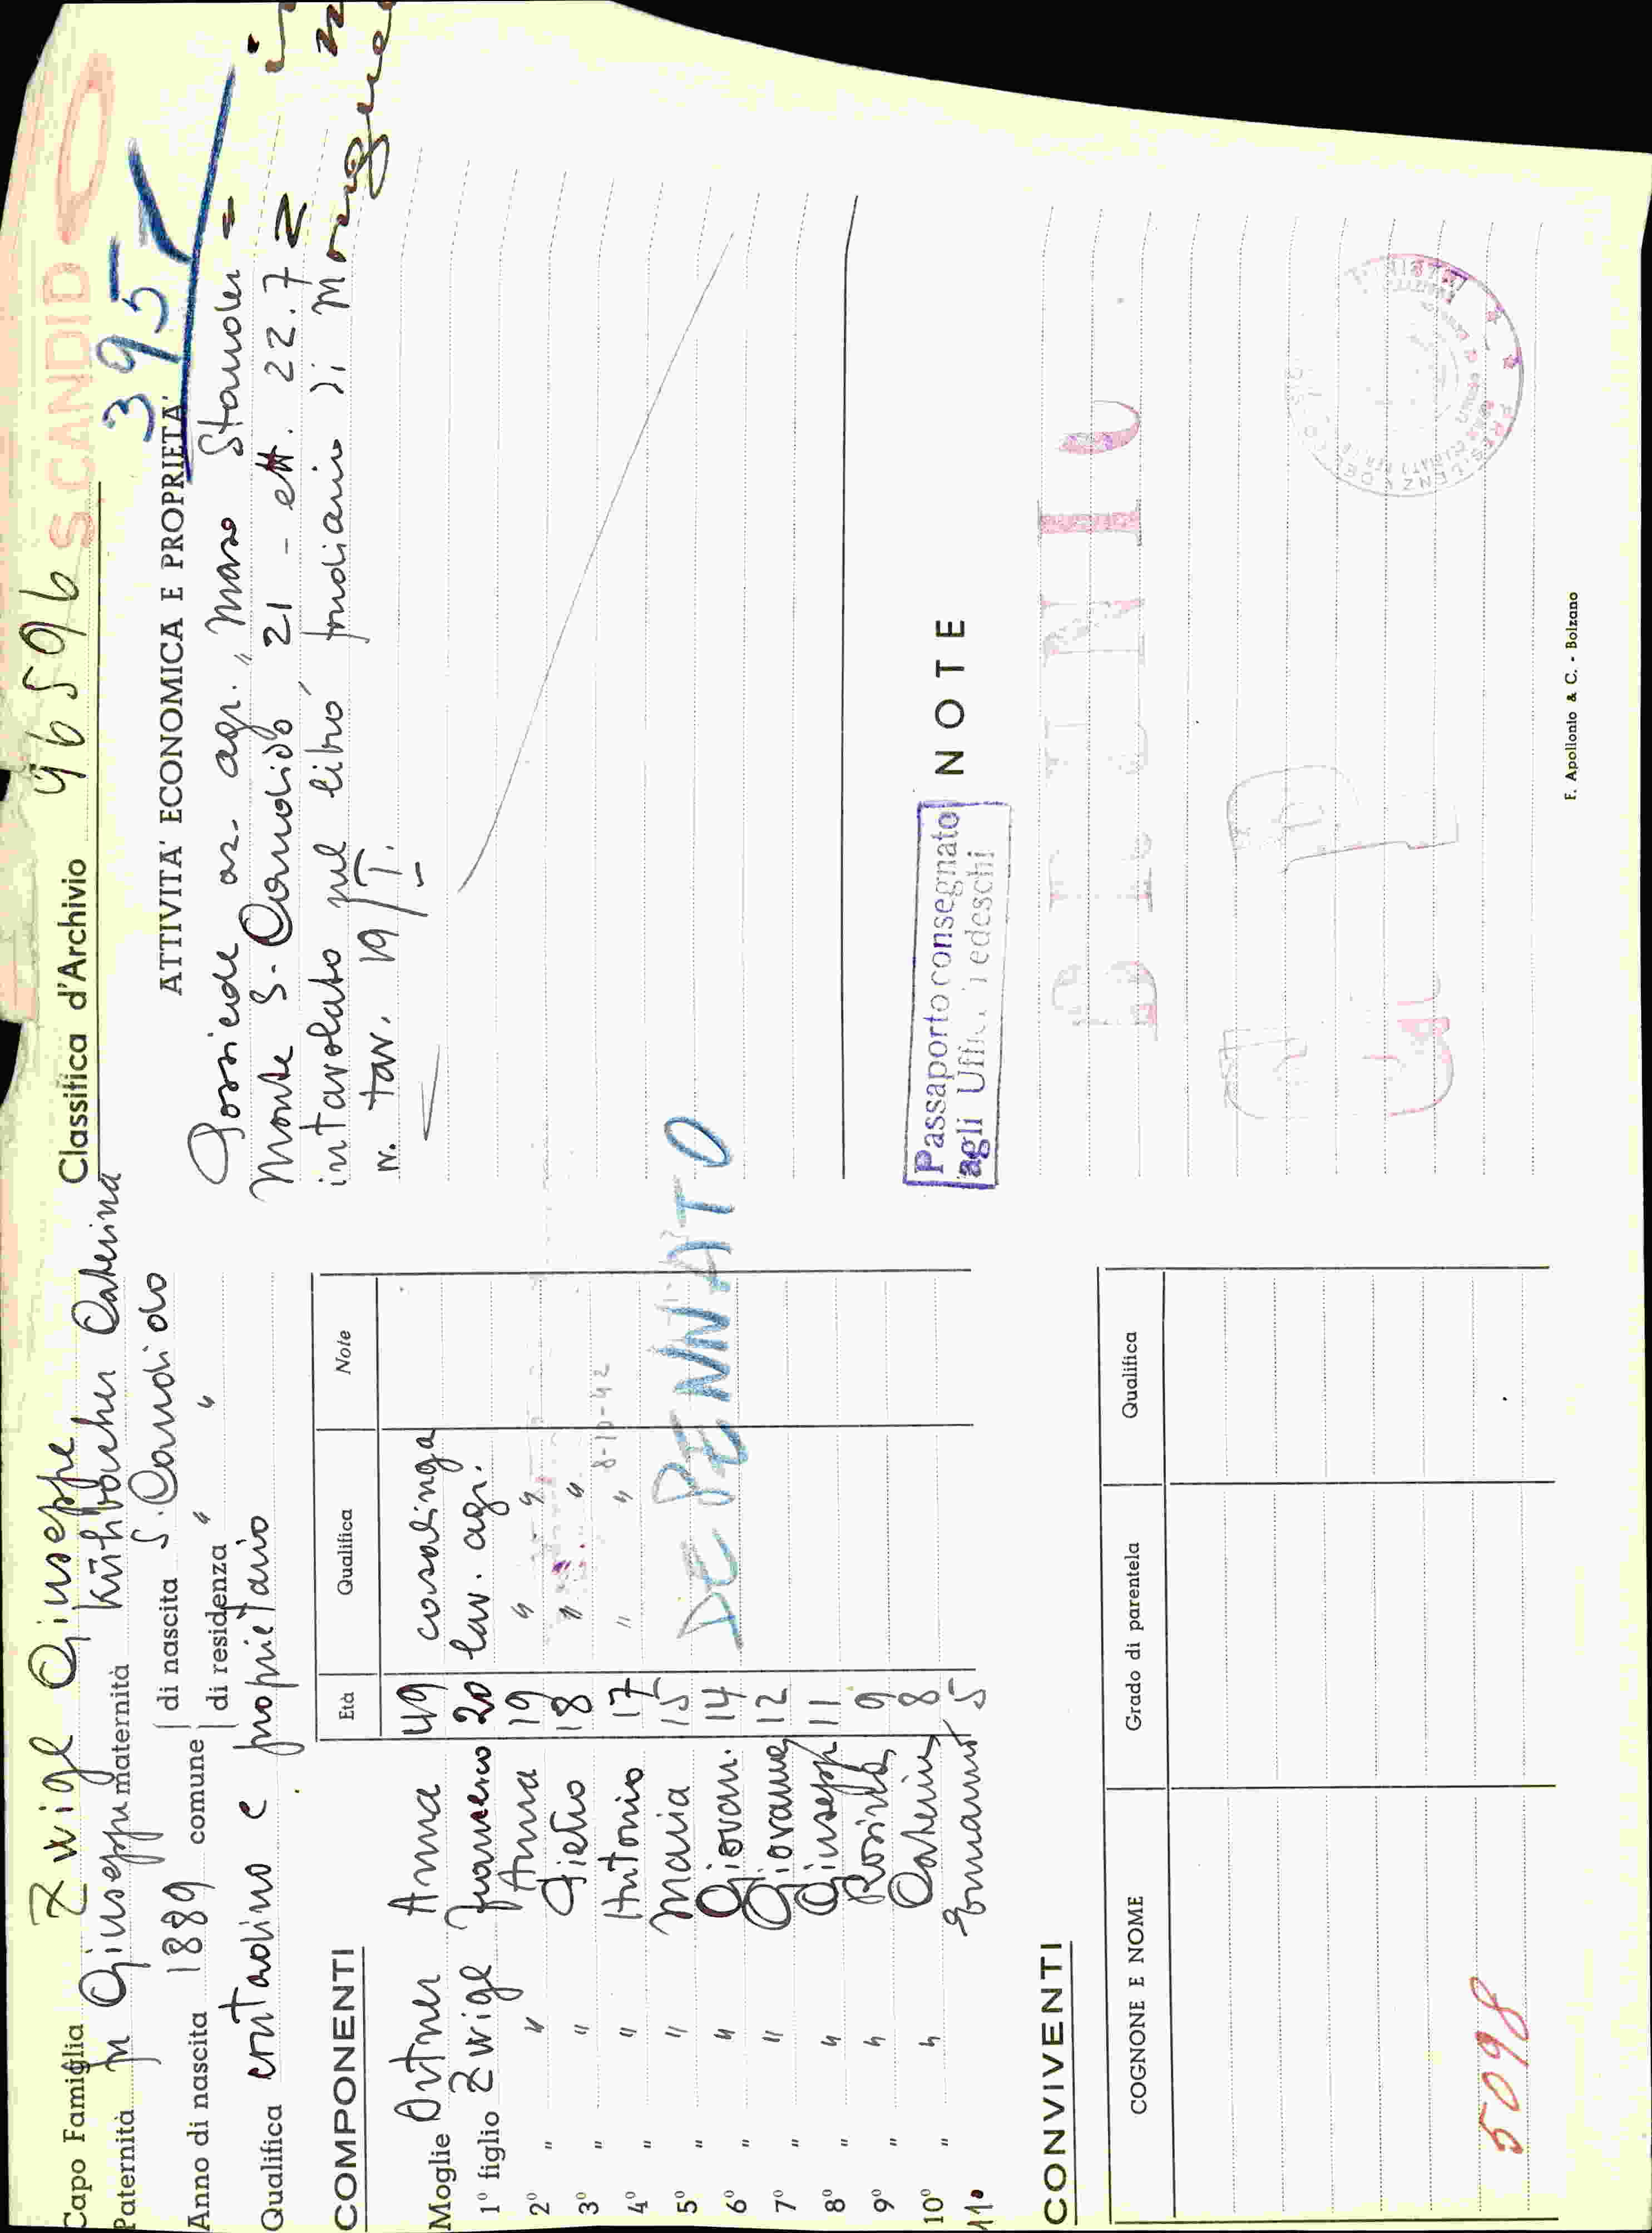 S. CANDIDO
Capo Famiglia Zwigl Giuseppe
Classifica d'Archivio 46596
Paternità fu Giuseppe maternità Kühbacher Caterina
395
Anno di nascita 1889 comune di nascita S. Candido
di residenza " "
Qualifica contadino e proprietario
ATTIVITA' ECONOMICA E PROPRIETA'
Possiede az. agr. "Maso Stauder =
Monte S. Candido 21 - ett. 22.7
intavolato sul libro fondiario di
N. tav. 19/T.
COMPONENTI
Età Qualifica Note
Moglie Ortner Anna 49 casalinga
1° figlio Zwigl Francesco 20 lav. agr.
2° " " Anna 19 " "
3° " " Pietro 18 " "
4° " " Antonio 17 " " 8-10-42
5° " " Maria 15
6° " " Giovan. 14
7° " " Giovanna 12
8° " " Giusepp 11
9° " " Rosinda 9
10° " " Caterina 8
11° Emanuel 5
DEPENNATO
Passaporto consegnato
agli Uffici Tedeschi
NOTE
CONVIVENTI
COGNONE E NOME Grado di parentela Qualifica
5098
F. Apollonio & C. - Bolzano